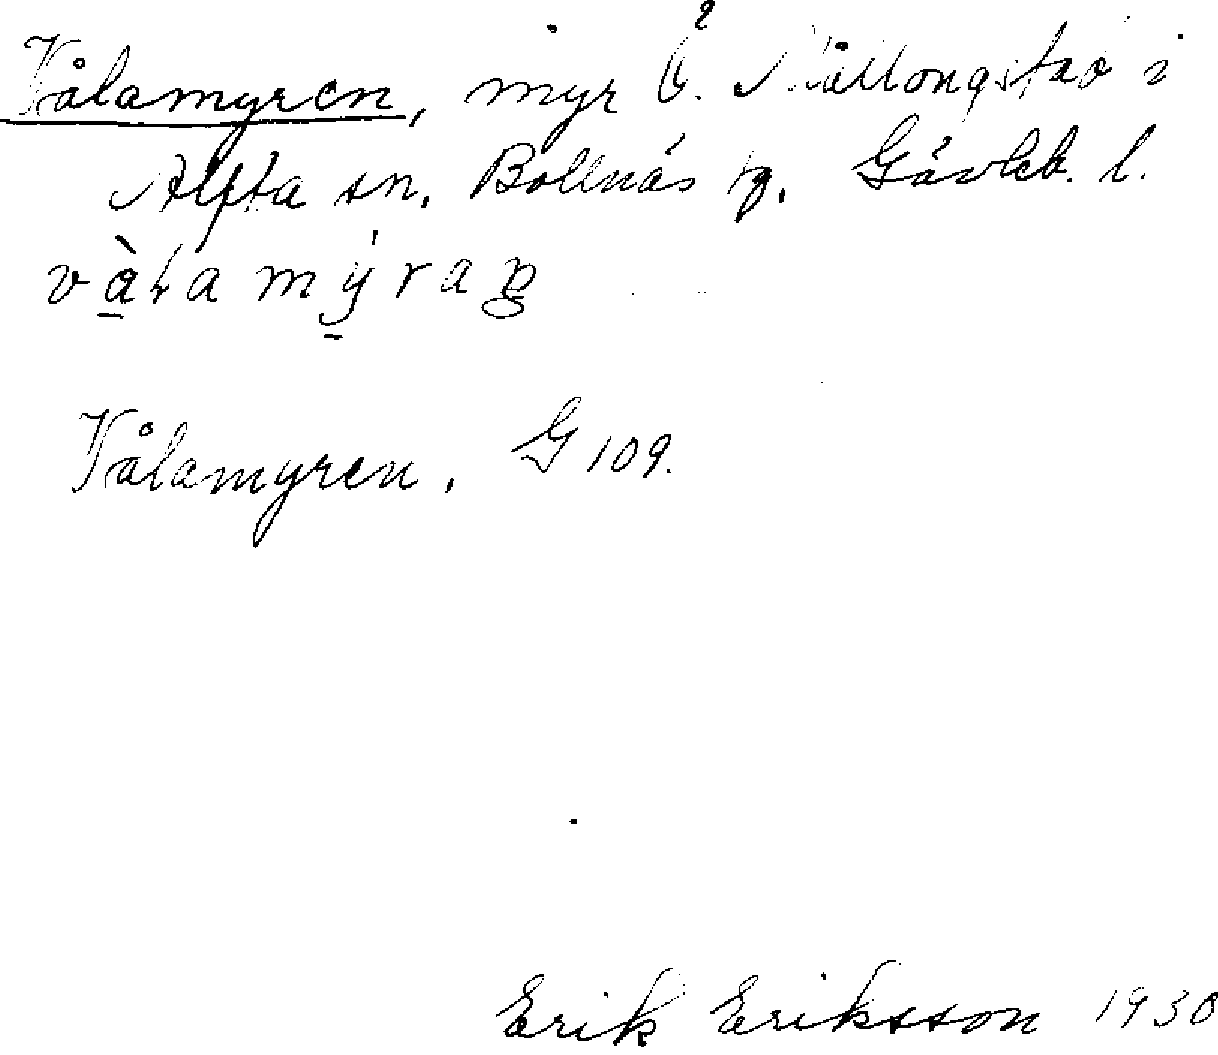 Vålamyren, myr Ö. Mållongstad i
Alfta sn. Bollnäs tg. Gävleb. l.
Vålamyren. G 109.
Erik Eriksson 1930